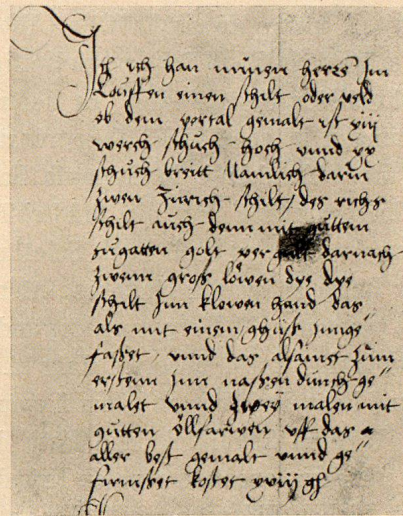 Ich ich han minen herrē Im
Louffen einen schilt oder veld
ob dem portal gemalt ist xiiij
werch schuch hoch vnnd xx
schuch breitt Namlich darin
zwen Zürich schilt / des richs
schilt auch denn mit guttem
tugatten golt vergült darnach
zwenn gross löwen dye dye
schilt Inn klowen hand das
als mit einem ghüss Inge
fasset, vnnd das alsamet zum
erstenn Inn nassen durch ge=
malet vnnd zwey malen mit
gutten ölfarwen vff das
aller best gemalt vnnd ge=
firnisset kostet xviij gl